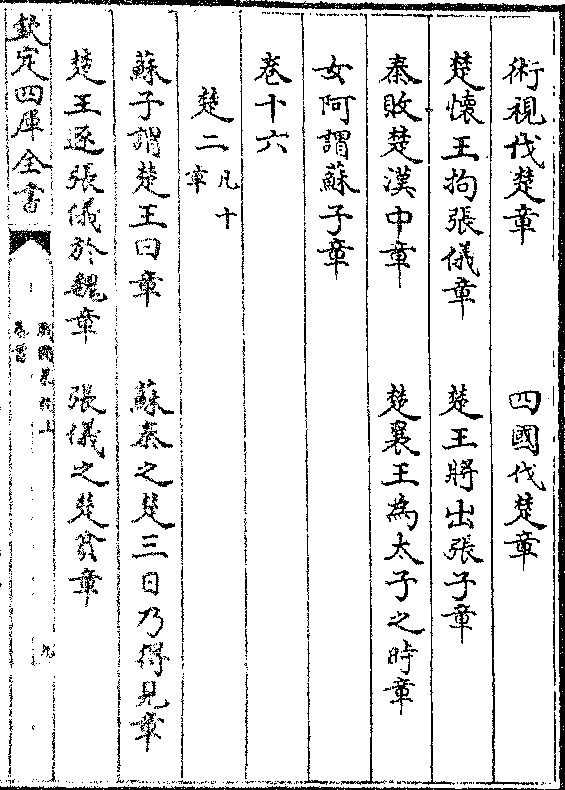 術視伐楚章　四國伐楚章
楚懷王拘張儀章　楚王將出張子章
秦敗楚漢中章　楚襄王為太子之時章
女阿謂蘇子章
卷十六
楚二凡十章
蘇子謂楚王曰章　蘇秦之楚三日乃得見章
楚王逐張儀於魏章　張儀之楚貧章
欽定四庫全書
九